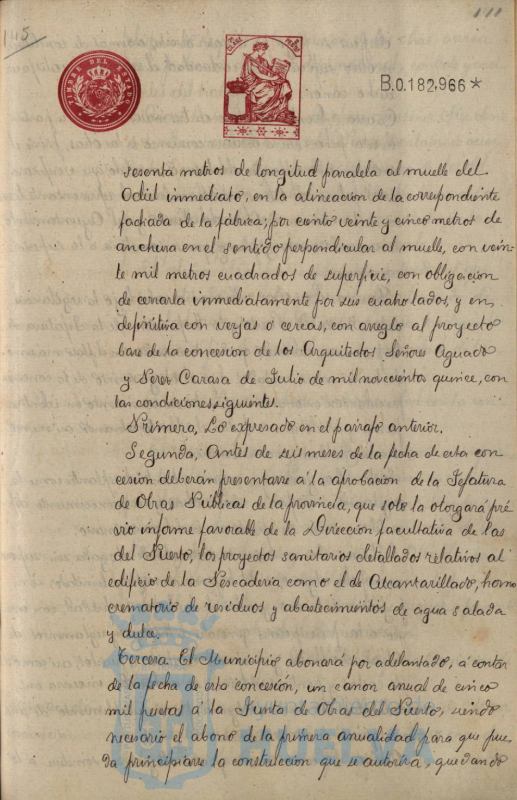 145
111
TIMBRE DEL ESTADO
B.0.182,966 *
sesenta metros de longitud paralela al muelle del
Odiel inmediato, en la alineacion de la correspondiente
fachada de la fábrica; por ciento veinte y cinco metros de
anchura en el sentido perpendicular al muelle, con vein-
te mil metros cuadrados de superficie, con obligacion
de cerrarla inmediatamente por sus cuatro lados, y en
definitiva con verjas o cercas, con arreglo al proyecto
base de la concesion de los Arquitectos Señores Aguado
y Perez Carasa de Julio de mil novecientos quince, con
las condiciones siguientes.
Primera, Lo expresado en el parrafo anterior.
Segunda, Antes de seis meses de la fecha de esta con
cesión deberán presentarse á la aprobación de la Jefatura
de Obras Publicas de la provincia, que solo la otorgará pré
vio informe favorable de la Dirección facultativa de las
del Puerto, los proyectos sanitarios detallados relativos al
edificio de la Pescaderia como el de Alcantarillado, horno
crematorio de residuos y abastecimientos de agua salada
y dulce.
Tercera. El Municipio abonará por adelantado, á contar
de la fecha de esta concesión, un canon anual de cinco
mil pesetas á la Junta de Obras del Puerto, siendo
necesario el abono de la primera anualidad para que pue-
da principiarse la construccion que se autoriza, quedando
HUELVA